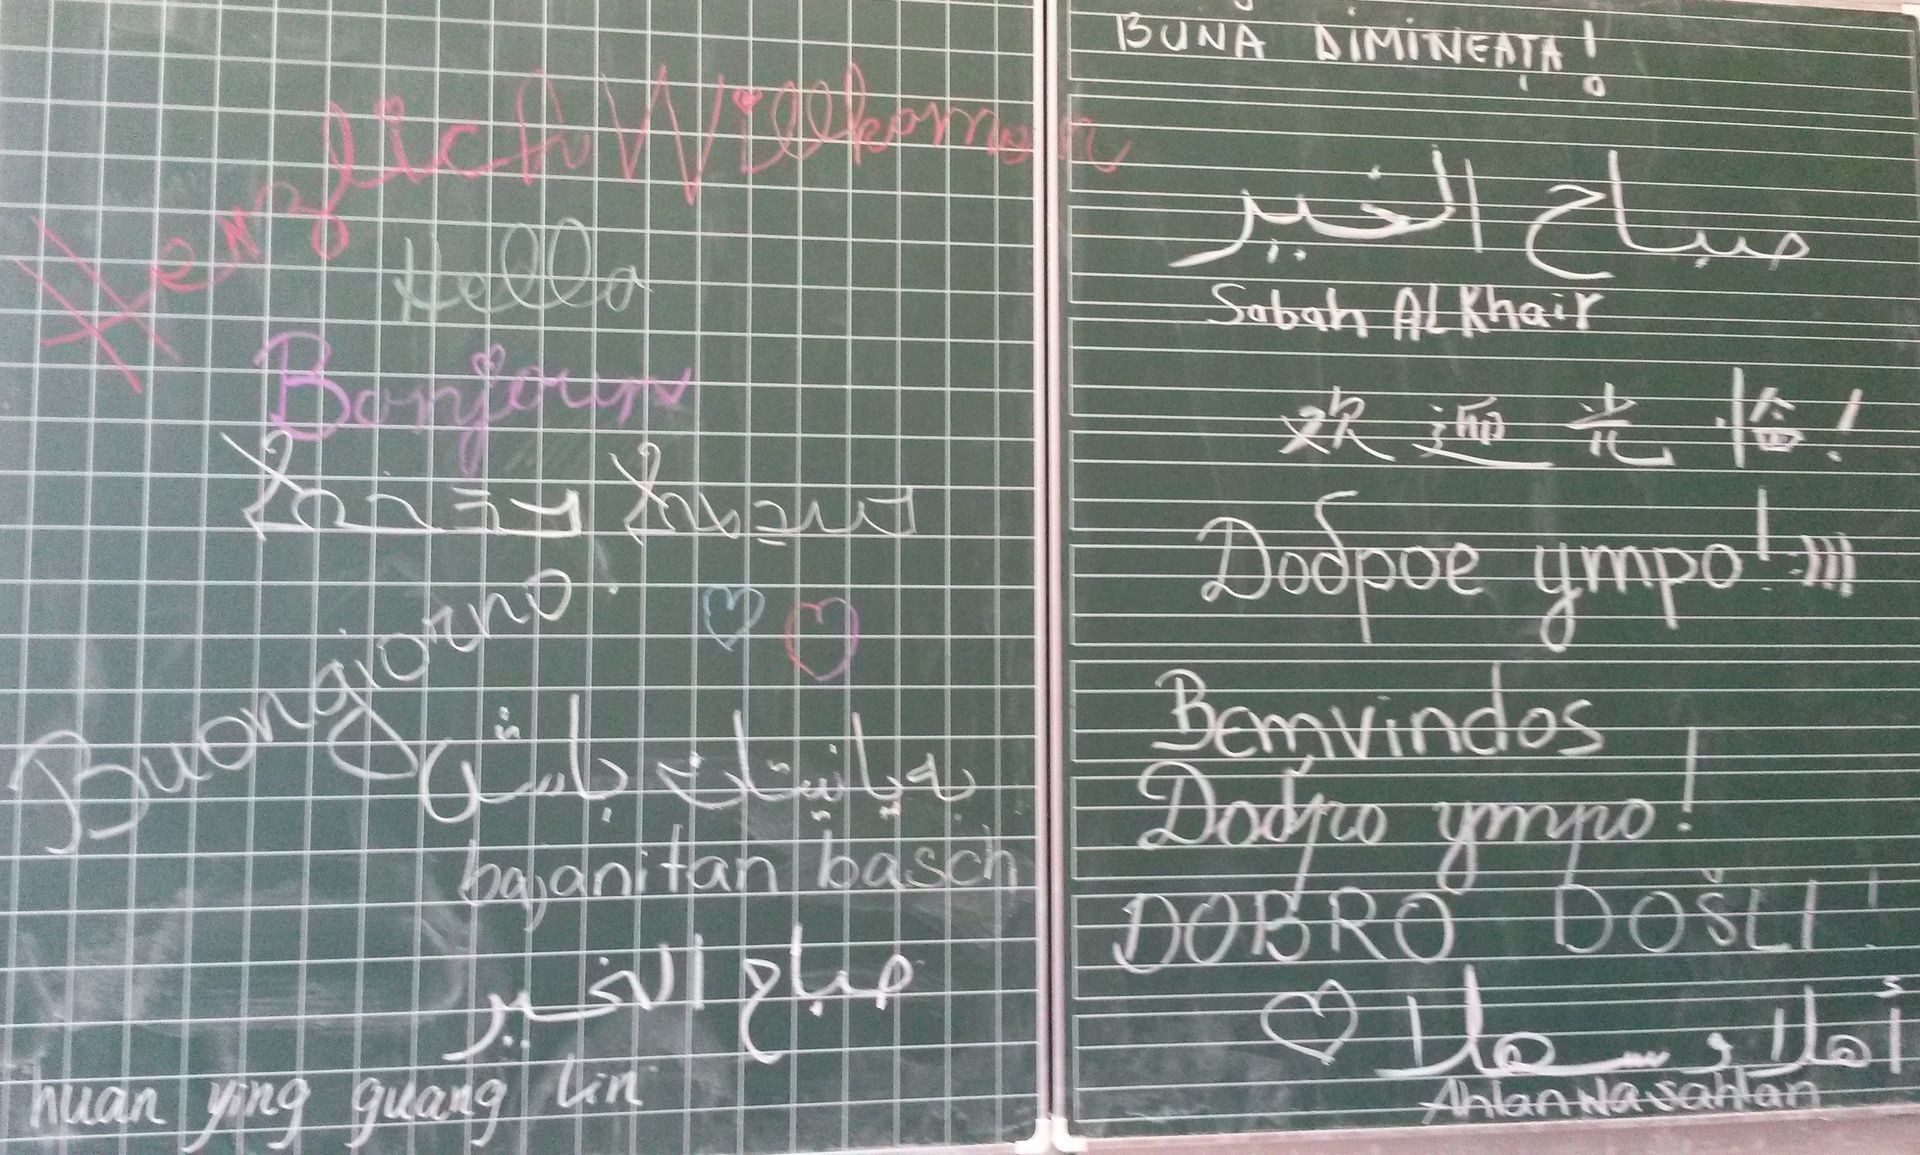 Herzlich Willkommen
Hello
Bonjour
Buongiorno!
بەیانیتان باش
bajanitan basch
صباح الخير
huan ying guang lin
BUNA DIMINEAȚA!
صباح الخير
Sabah AL Khair
欢迎光临!
Доброе утро! :)))
Bemvindos
Добро утро!
DOBRO DOŠLI!
أهلا و سهلا
Ahlan wa sahlan